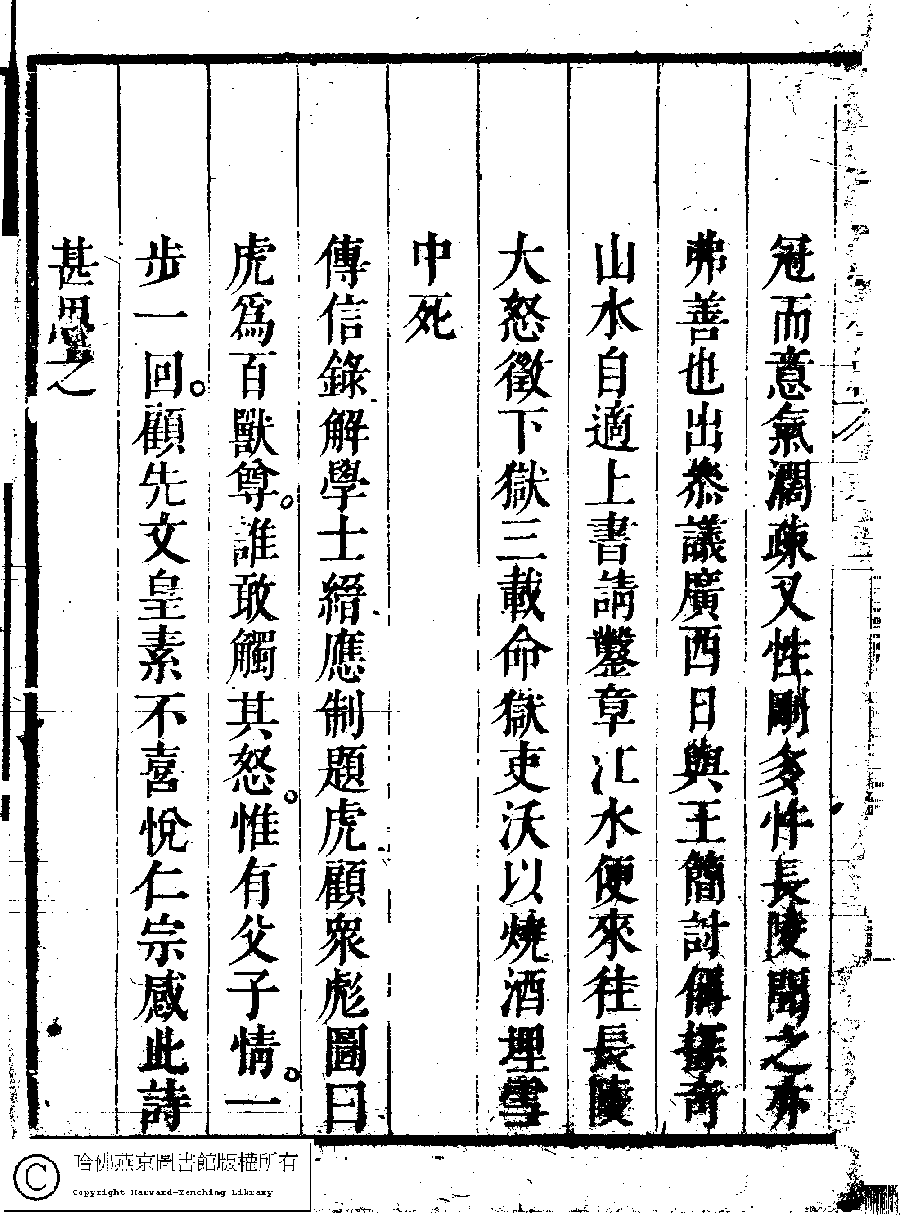 冠而意氣濶疎又性剛多忤長陵聞之亦
弗善也出叅議廣西日與王簡討偁探奇
山水自適上書請鑿章江水便來往長陵
大怒徵下獄三載命獄吏沃以燒酒埋雪
中死
傳信錄解學士縉應制題虎顧衆彪圖曰
虎爲百獸尊。誰敢觸其怒。惟有父子情。一
步一回。顧先文皇素不喜悅仁宗感此詩
甚思之
哈佛燕京圖書館版權所有
Copyright Harvard-Yenching Library